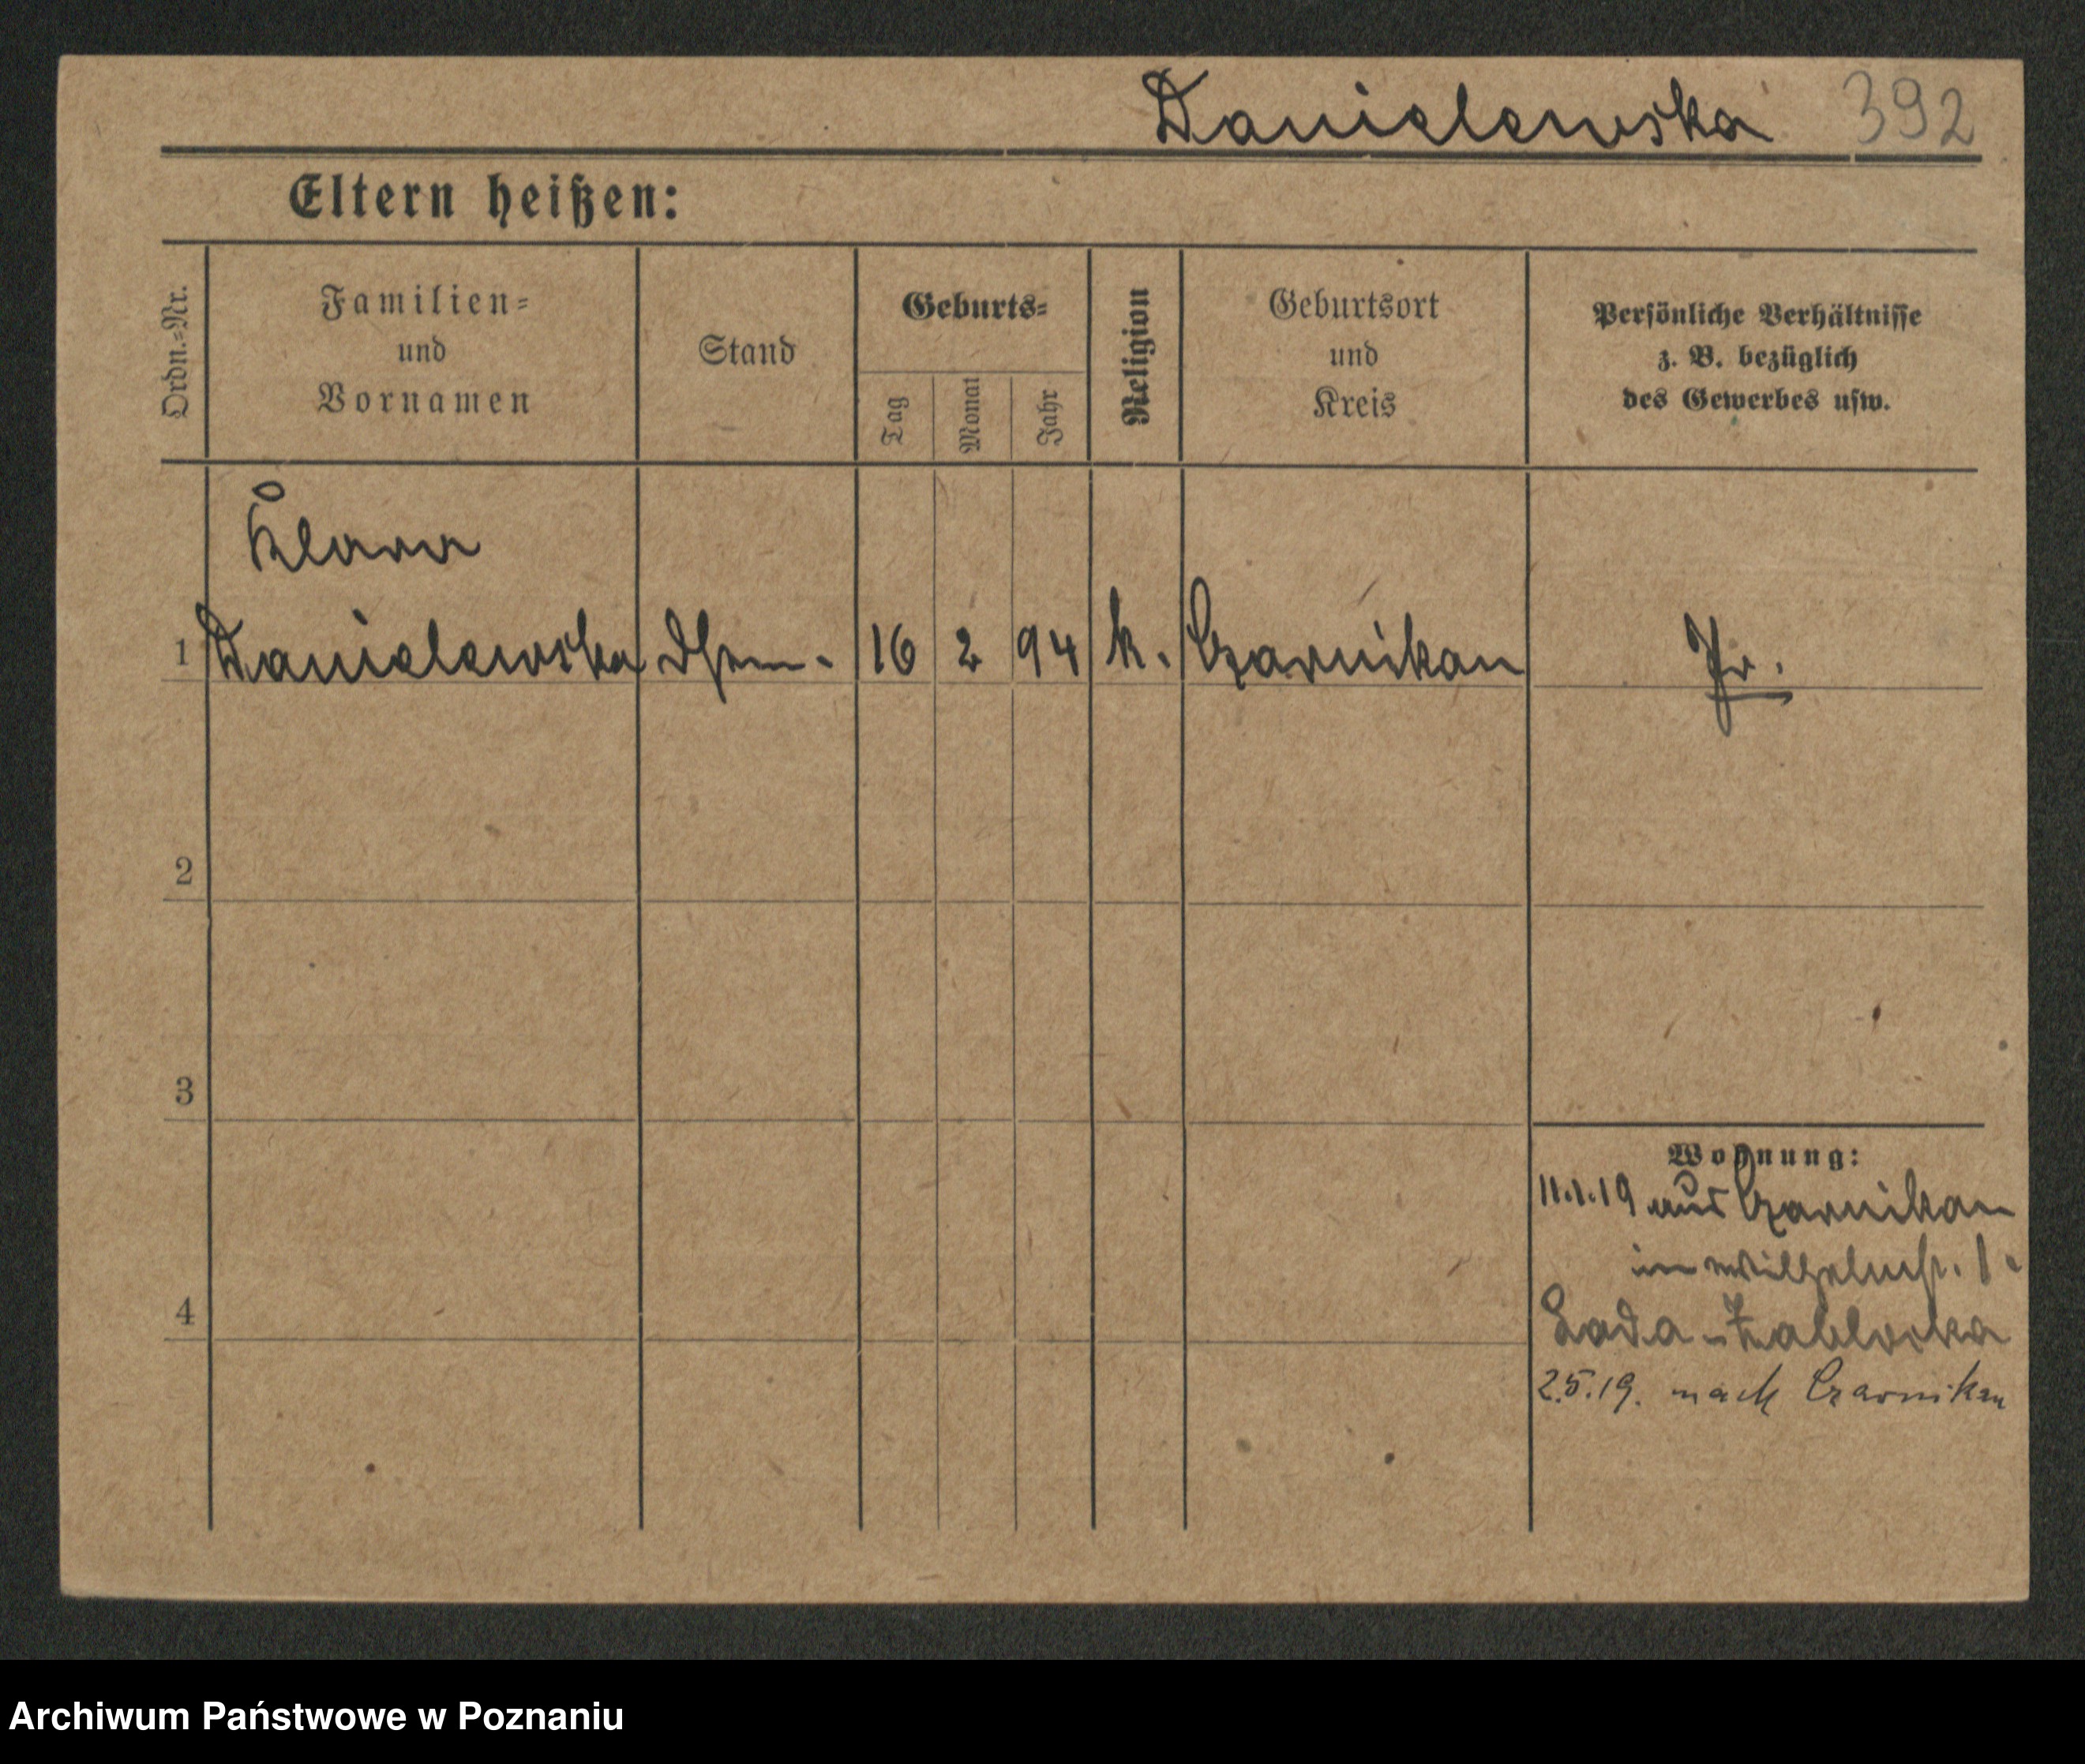 Danielewska 392
Eltern heißen:
Ordn.-Nr.
Familien-
und
Vornamen
Stand
Geburts-
Tag
Monat
Jahr
Religion
Geburtsort
und
Kreis
Persönliche Verhältnisse
z. B. bezüglich
des Gewerbes usw.
Klara
1 Danielewska 16 2 94 k. Czarnikau Pr.
2
3
4
Wohnung:
11.1.19 aus Czarnikau
in Wilhelmstr. 1
Zablocka
2.5.19. nach Czarnikau
Archiwum Państwowe w Poznaniu